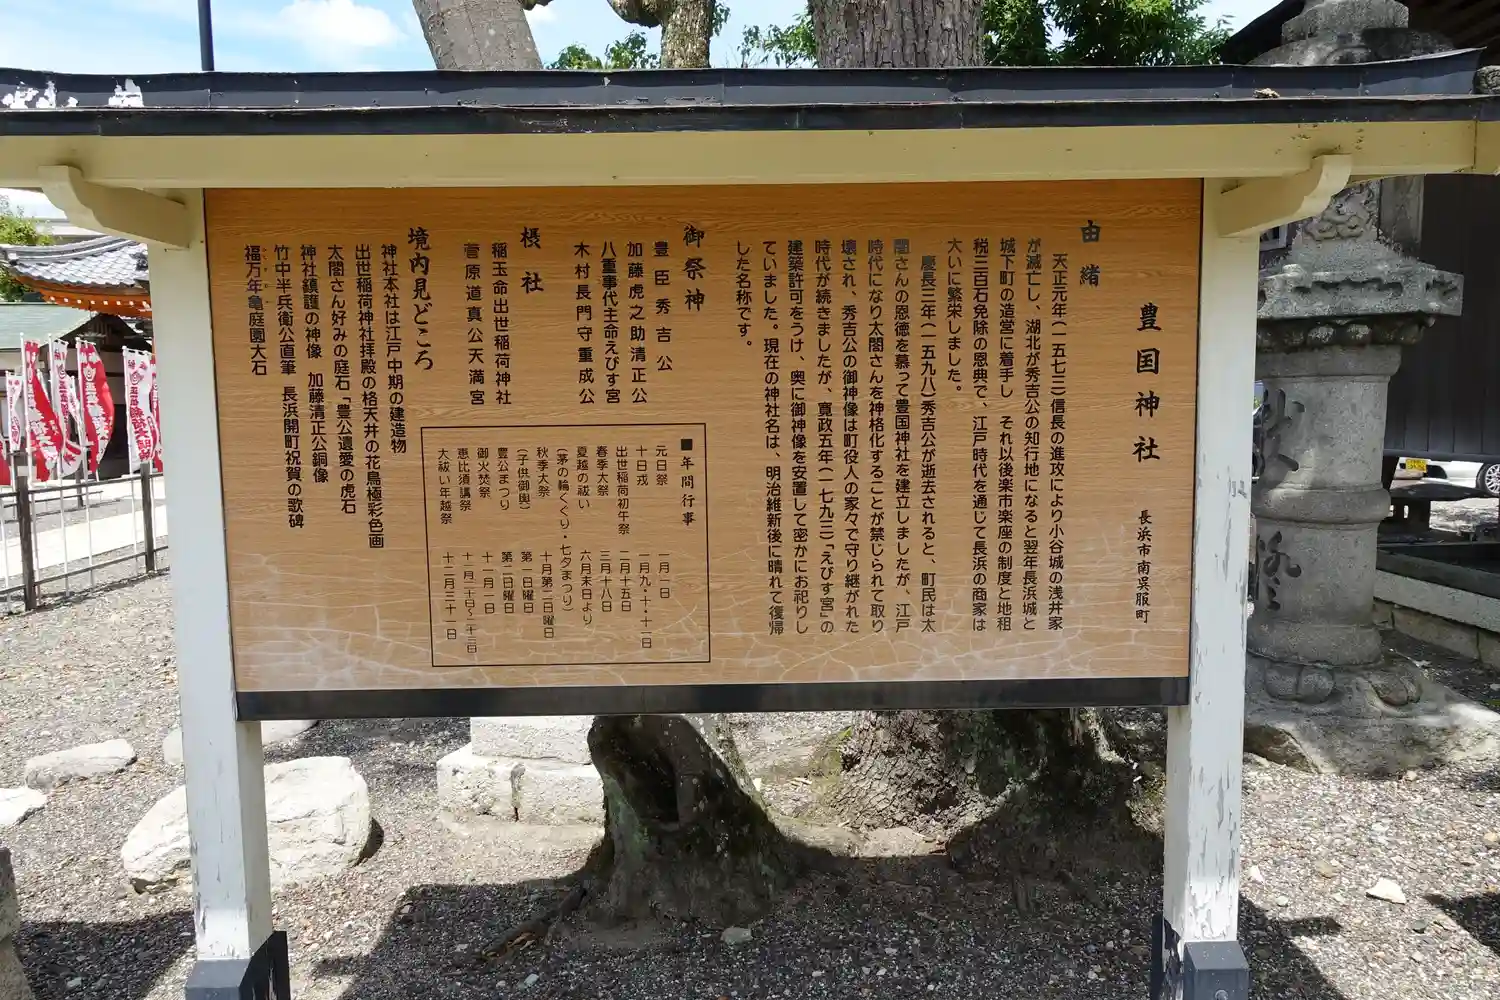 豊国神社
長浜市南呉服町
由緒
天正元年(一五七三)信長の進攻により小谷城の浅井家
が滅亡し、湖北が秀吉公の知行地になると翌年長浜城と
城下町の造営に着手し それ以後楽市楽座の制度と地租
税三百石免除の恩典で、江戸時代を通じて長浜の商家は
大いに繁栄しました。
慶長三年(一五九八)秀吉公が逝去されると、町民は太
閤さんの恩徳を慕って豊国神社を建立しましたが、江戸
時代になり太閤さんを神格化することが禁じられて取り
壊され、秀吉公の御神像は町役人の家々で守り継がれた
時代が続きましたが、寛政五年(一七九三)「えびす宮」の
建築許可をうけ、奥に御神像を安置して密かにお祀りし
ていました。現在の神社名は、明治維新後に晴れて復帰
した名称です。
御祭神
豊臣秀吉公
加藤虎之助清正公
八重事代主命えびす宮
木村長門守重成公
摂社
稲玉命出世稲荷神社
菅原道真公天満宮
■年間行事
元日祭 一月一日
十日戎 一月九・十・十一日
出世稲荷初午祭 二月十五日
春季大祭 三月十八日
夏越の祓い 六月末日より
(茅の輪くぐり・七夕まつり)
秋季大祭 十月第二日曜日
(子供御輿) 第一日曜日
豊公まつり 第二日曜日
御火焚祭 十一月一日
恵比須講祭 十一月二十日〜二十三日
大祓い年越祭 十二月三十一日
境内見どころ
神社本社は江戸中期の建造物
出世稲荷神社拝殿の格天井の花鳥極彩色画
太閤さん好みの庭石「豊公遺愛の虎石
神社鎮護の神像 加藤清正公銅像
竹中半兵衛公直筆 長浜開町祝賀の歌碑
福万年亀庭園大石